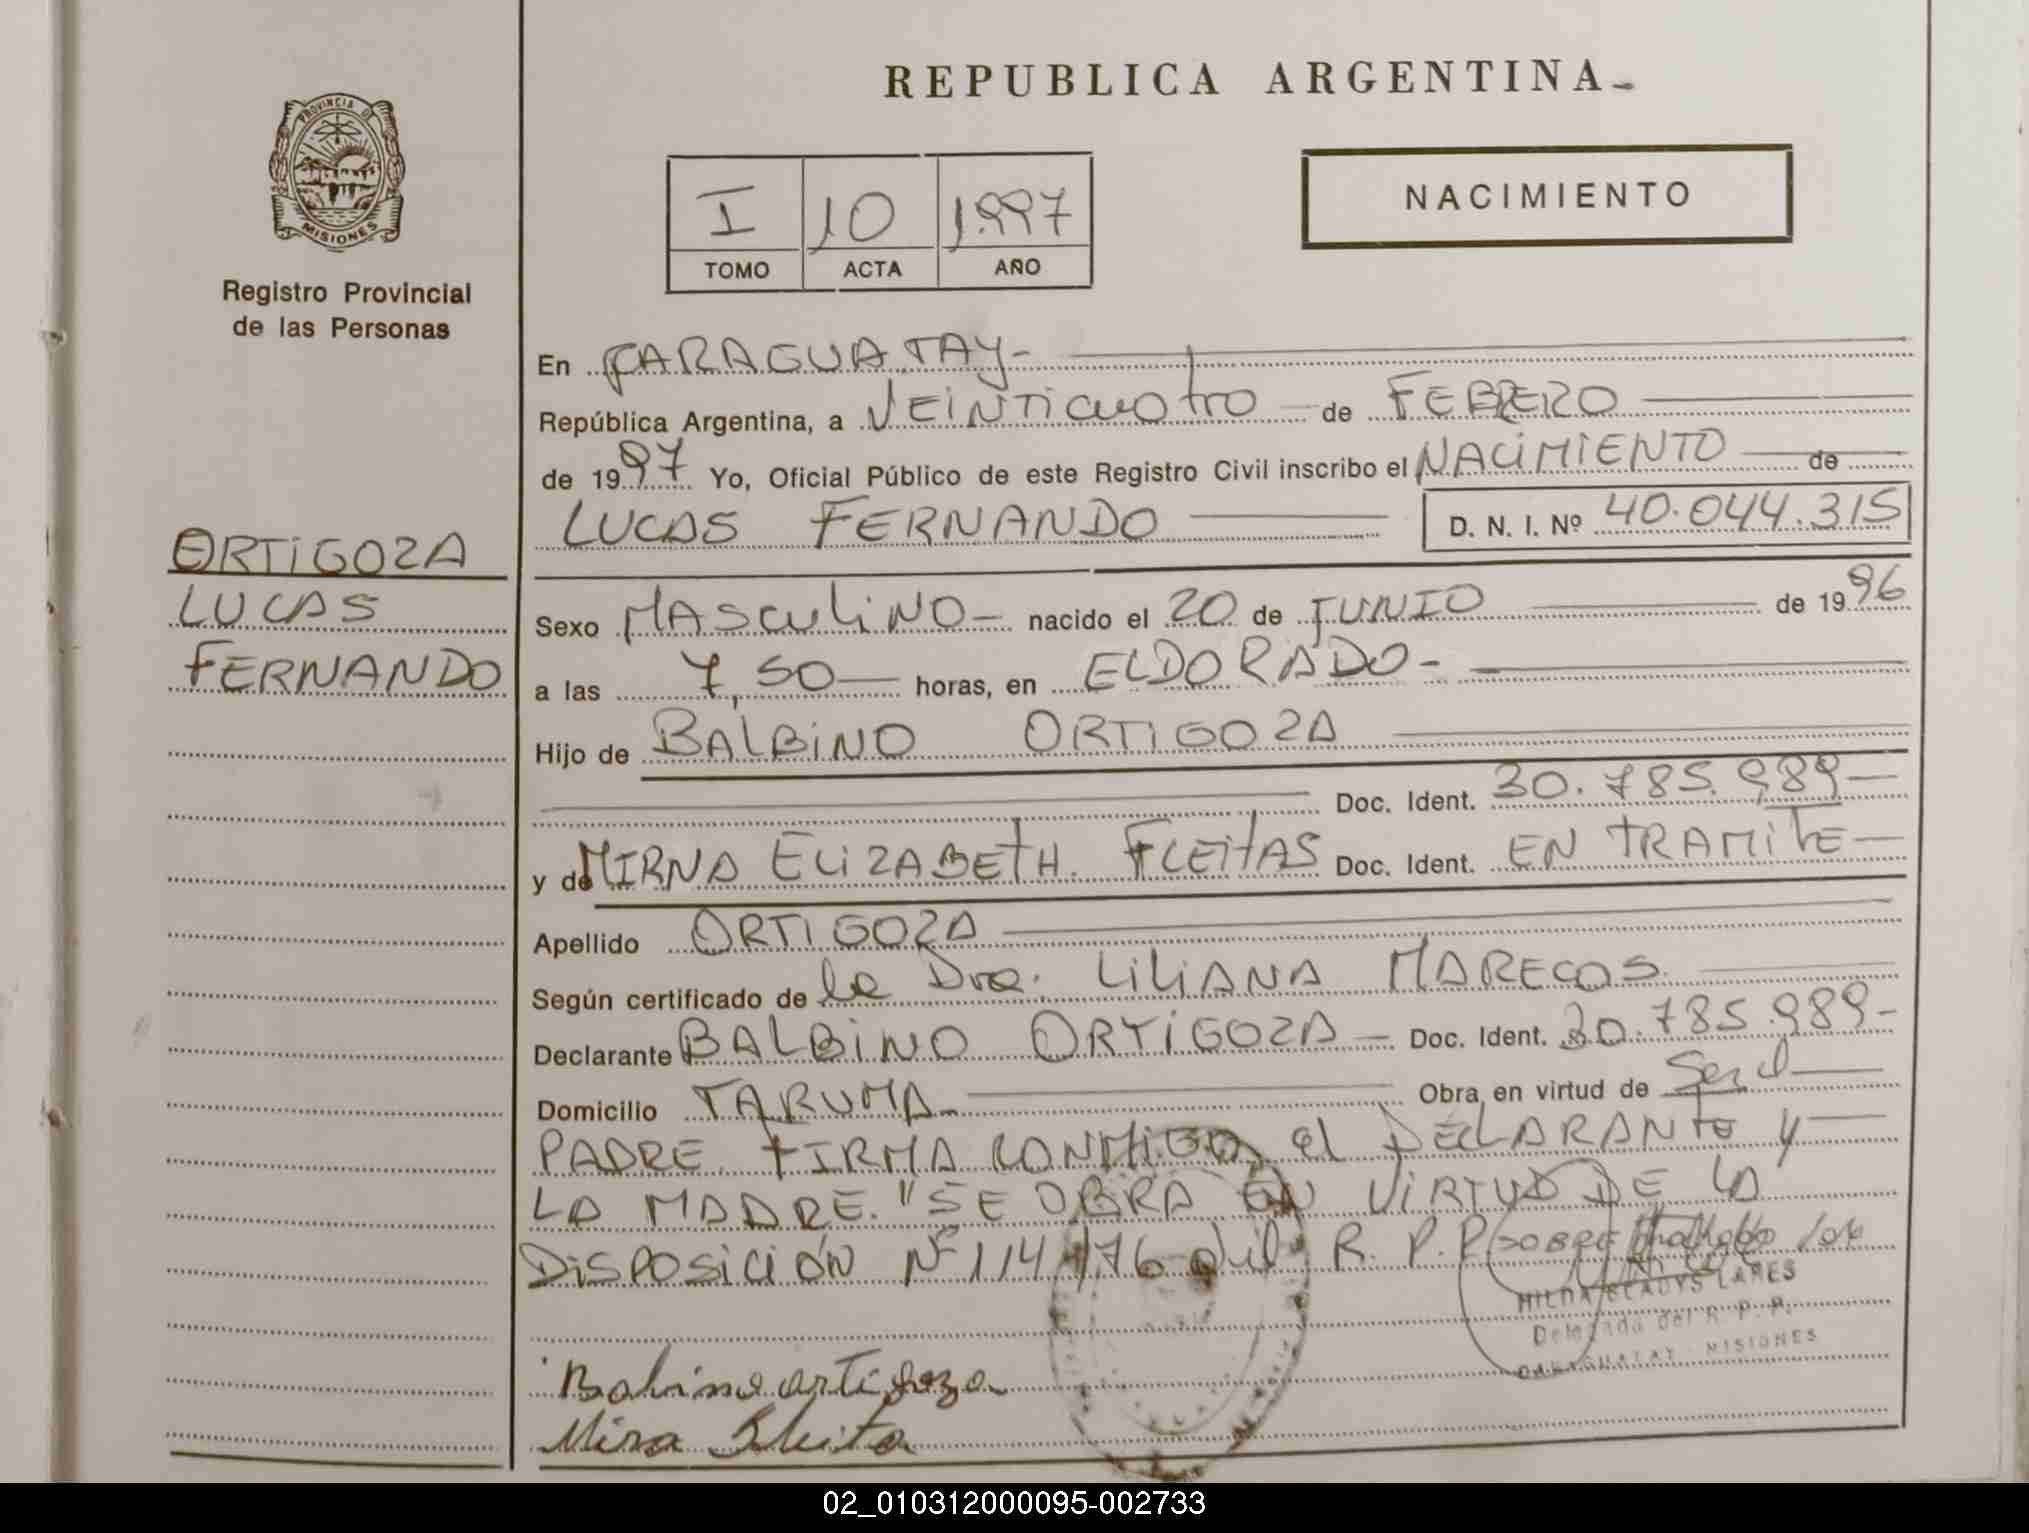 REPUBLICA ARGENTINA
PROVINCIA DE
MISIONES
Registro Provincial
de las Personas
I 10 1997
TOMO ACTA AÑO
NACIMIENTO
En CARAGUATAY-
República Argentina, a VEINTICUATRO de FEBRERO
de 1997 Yo, Oficial Público de este Registro Civil inscribo el NACIMIENTO de
LUCAS FERNANDO D. N. I. Nº 40.044.315
ORTIGOZA
LUCAS
FERNANDO
Sexo MASCULINO- nacido el 20 de JUNIO de 1996
a las 7,50 horas, en ELDORADO-
Hijo de BALBINO ORTIGOZA
Doc. Ident. 30.785.989-
y de MIRNA ELIZABETH. FLEITAS Doc. Ident. EN TRAMITE-
Apellido ORTIGOZA
Según certificado de la Dra. LILIANA MARECOS.
Declarante BALBINO ORTIGOZA - Doc. Ident. 30.785.989-
Domicilio TARUMA- Obra en virtud de Ser el
PADRE. FIRMA CONMIGO el DECLARANTE Y
LA MADRE. "SE OBRA EN VIRTUD DE LA
DISPOSICIÓN Nº 114/76 del R. P. P. SOBRE
HILDA GLADYS LARES
Delegada del R. P. P.
CARAGUATAY - MISIONES
Balvino ortigoza
Mirna Fleita
02_010312000095-002733